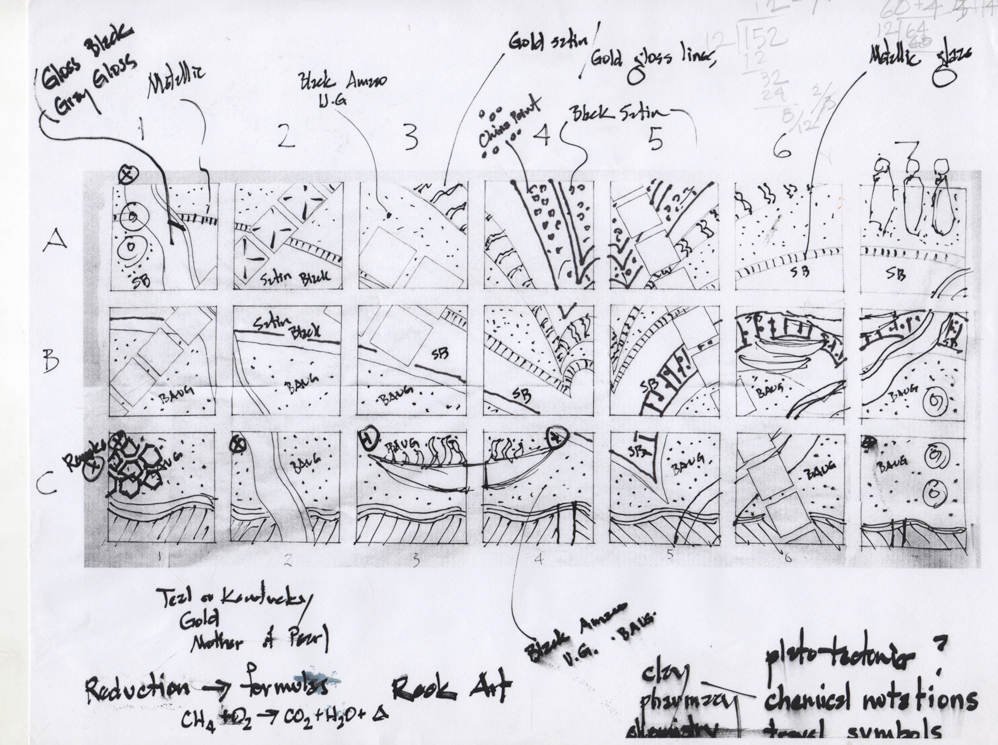 12
60 + 4
12 152
12
32
24
8/12
2/3
12 64
Gloss Black
Gray Gloss
Metallic
Black Amaco
U.G.
Gold satin/
Gold gloss lines,
China Paint
Black Satin
Metallic glaze
1 2 3 4 5 6 7
A
SB
Satin Black
SB
SB
B
BAUG
Satin
Black
BAUG
SB
BAUG
SB
SB
SB
BAUG
SB
BAUG
C
BAUG
BAUG
SB
BAUG
BAUG
BAUG
1 2 3 4 5 6
Teal or Kentucky
Gold
Mother of Pearl
Black Amaco
U.G. BAUG.
Reduction → formulas
CH4 + O2 → CO2 + H2O + Δ
Rook Art
clay
pharmacy
chemistry
plate tectonics ?
chemical notations
travel symbols